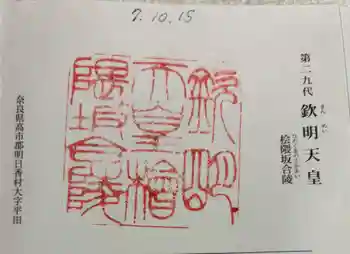 7.10.15
第二九代 欽明天皇
きん めい
桧隈坂合陵
欽明
天皇檜
隈坂合陵
奈良県高市郡明日香村大字平田